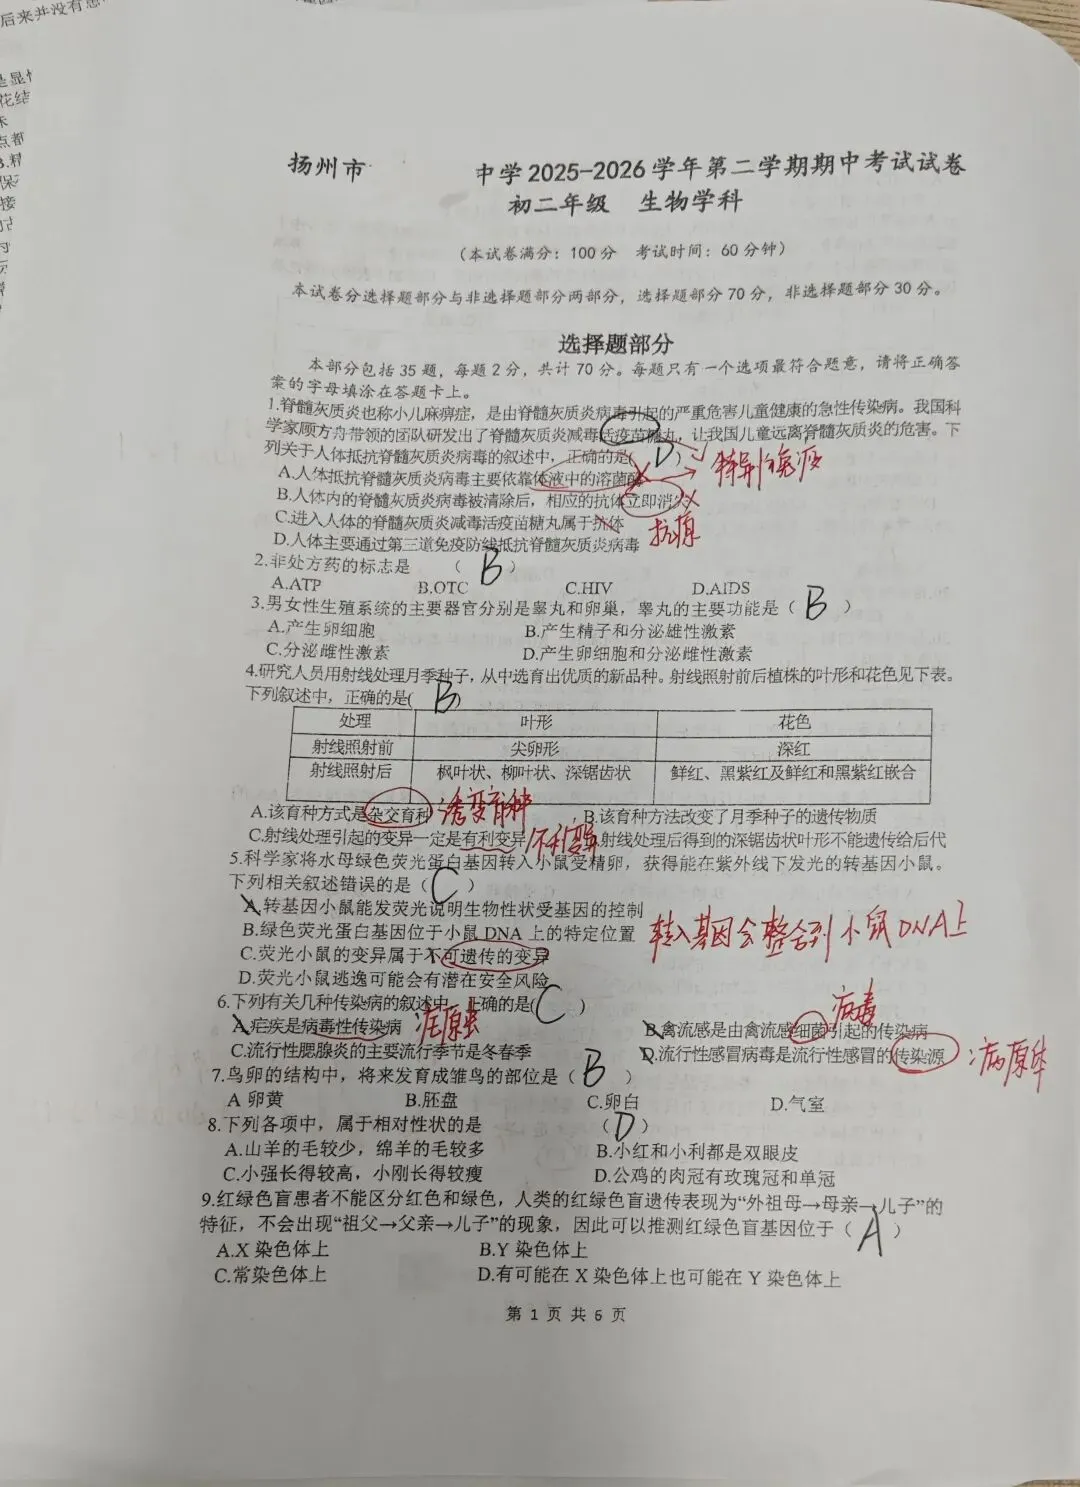 后来并没有患
是显性
花结
点都
扬州市 中学2025-2026学年第二学期期中考试试卷
初二年级 生物学科
（本试卷满分：100分 考试时间：60分钟）
本试卷分选择题部分与非选择题部分两部分，选择题部分70分，非选择题部分30分。
选择题部分
本部分包括35题，每题2分，共计70分。每题只有一个选项最符合题意，请将正确答
案的字母填涂在答题卡上。
1.脊髓灰质炎也称小儿麻痹症，是由脊髓灰质炎病毒引起的严重危害儿童健康的急性传染病。我国科
学家顾方舟带领的团队研发出了脊髓灰质炎减毒活疫苗糖丸，让我国儿童远离脊髓灰质炎的危害。下
列关于人体抵抗脊髓灰质炎病毒的叙述中，正确的是( D )
特异性免疫
A.人体抵抗脊髓灰质炎病毒主要依靠体液中的溶菌酶
B.人体内的脊髓灰质炎病毒被清除后，相应的抗体立即消失
C.进入人体的脊髓灰质炎减毒活疫苗糖丸属于抗体 抗原
D.人体主要通过第三道免疫防线抵抗脊髓灰质炎病毒
2.非处方药的标志是 （ B ）
A.ATP B.OTC C.HIV D.AIDS
3.男女性生殖系统的主要器官分别是睾丸和卵巢，睾丸的主要功能是（ B ）
A.产生卵细胞 B.产生精子和分泌雄性激素
C.分泌雌性激素 D.产生卵细胞和分泌雌性激素
4.研究人员用射线处理月季种子，从中选育出优质的新品种。射线照射前后植株的叶形和花色见下表。
下列叙述中，正确的是( B )
处理 叶形 花色
射线照射前 尖卵形 深红
射线照射后 枫叶状、柳叶状、深锯齿状 鲜红、黑紫红及鲜红和黑紫红嵌合
A.该育种方式是杂交育种 诱变育种 B.该育种方法改变了月季种子的遗传物质
C.射线处理引起的变异一定是有利变异 不利变异 射线处理后得到的深锯齿状叶形不能遗传给后代
5.科学家将水母绿色荧光蛋白基因转入小鼠受精卵，获得能在紫外线下发光的转基因小鼠。
下列相关叙述错误的是（ C ）
A.转基因小鼠能发荧光说明生物性状受基因的控制
B.绿色荧光蛋白基因位于小鼠DNA上的特定位置 转入基因会整合到小鼠DNA上
C.荧光小鼠的变异属于不可遗传的变异
D.荧光小鼠逃逸可能会有潜在安全风险
6.下列有关几种传染病的叙述中，正确的是( C )
病毒
A.疟疾是病毒性传染病 疟原虫 B.禽流感是由禽流感细菌引起的传染病
C.流行性腮腺炎的主要流行季节是冬春季 D.流行性感冒病毒是流行性感冒的传染源 病原体
7.鸟卵的结构中，将来发育成雏鸟的部位是（ B ）
A 卵黄 B.胚盘 C.卵白 D.气室
8.下列各项中，属于相对性状的是 （ D ）
A.山羊的毛较少，绵羊的毛较多 B.小红和小利都是双眼皮
C.小强长得较高，小刚长得较瘦 D.公鸡的肉冠有玫瑰冠和单冠
9.红绿色盲患者不能区分红色和绿色，人类的红绿色盲遗传表现为“外祖母→母亲→儿子”的
特征，不会出现“祖父→父亲→儿子”的现象，因此可以推测红绿色盲基因位于（ A ）
A.X染色体上 B.Y染色体上
C.常染色体上 D.有可能在X染色体上也可能在Y染色体上
第 1 页 共 6 页